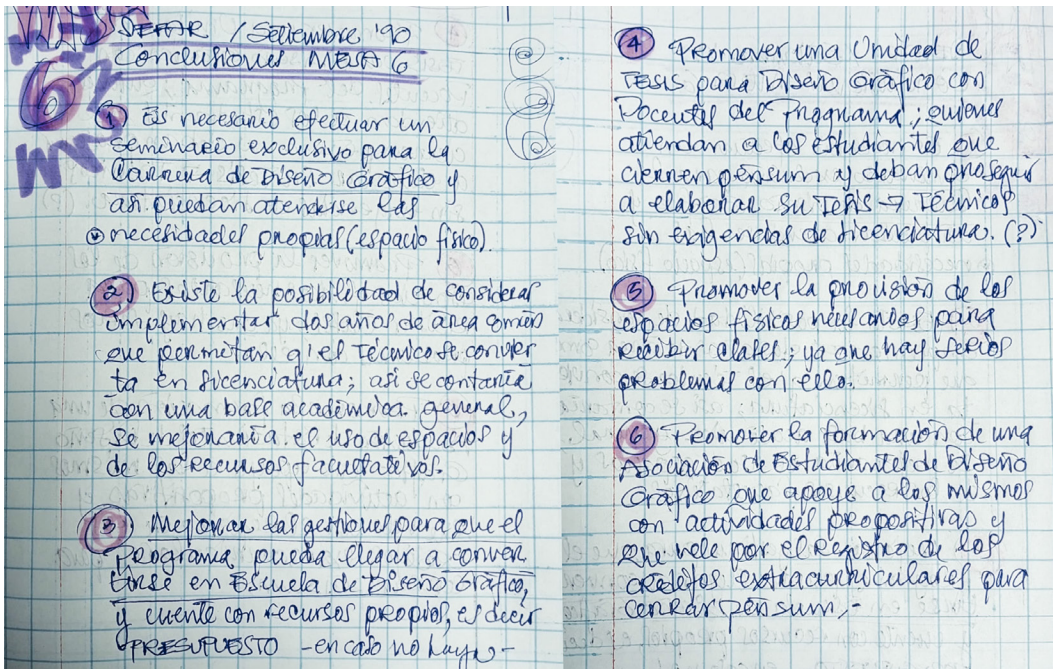 SEFAR / Setiembre '90
Conclusiones MESA 6
6
① Es necesario efectuar un
Seminario exclusivo para la
Carrera de Diseño Gráfico y
así puedan atenderse las
necesidades propias (espacio físico).
② Existe la posibilidad de considerar
implementar dos años de área común
que permitan q' el Técnico se convier
ta en Licenciatura; así se contaría
con una base académica general,
se mejoraría el uso de espacios y
de los recursos facultativos.
③ Mejorar las gestiones para que el
programa pueda llegar a conver
tirse en Escuela de Diseño Gráfico,
y cuente con recursos propios, es decir
PRESUPUESTO - en caso no haya -
④ Promover una Unidad de
TESIS para Diseño Gráfico con
Docentes del Programa; quienes
atiendan a los estudiantes que
cierren pénsum y deban proseguir
a elaborar su Tesis → Técnicos
sin exigencias de Licenciatura. (?)
⑤ Promover la provisión de los
espacios físicos necesarios para
recibir clases; ya que hay serios
problemas con ello.
⑥ Promover la formación de una
Asociación de Estudiantes de Diseño
Gráfico que apoye a los mismos
con actividades propositivas y
que vele por el Registro de los
créditos extracurriculares para
cerrar pénsum.-